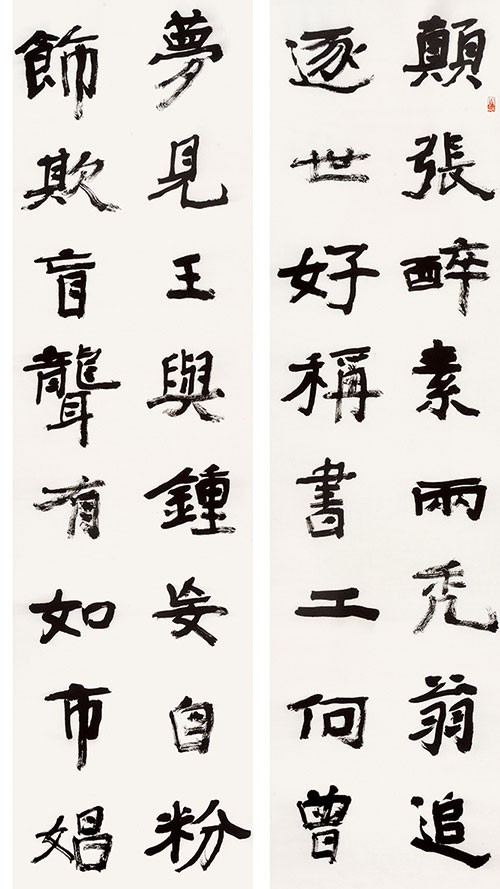 顛張醉素兩禿翁追
逐世好稱書工何曾
夢見王與鍾妄自粉
飾欺盲聾有如市娼